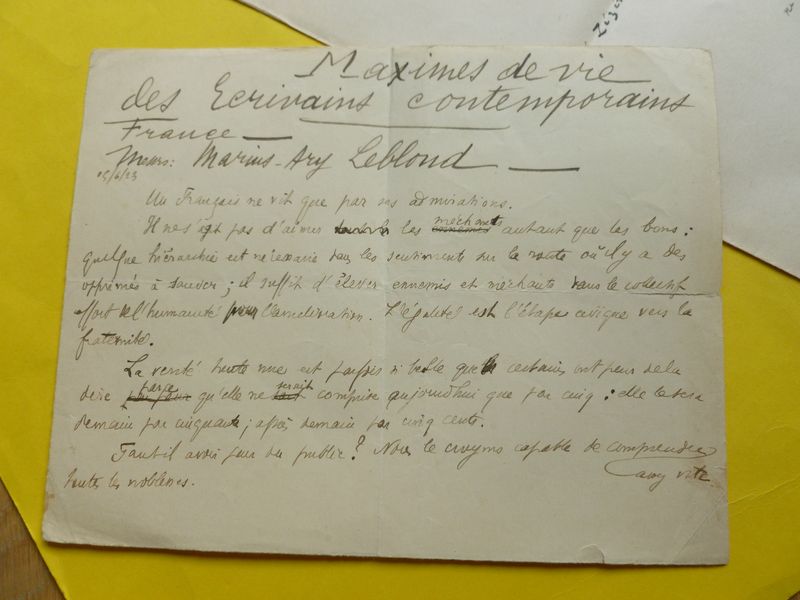 Maximes de vie
des Ecrivains contemporains
France —
Marius-Ary Leblond —
Un Français ne vit que par ses admirations.
Il ne s'agit pas d'aimer les méchants autant que les bons :
quelque hiérarchie est nécessaire dans les sentiments sur la route où il y a des
opprimés à sauver ; il suffit d'élever ennemis et méchants dans le collectif
effort de l'humanité pour l'amélioration. L'égalité est l'étape civique vers la
fraternité.
La vérité toute nue est parfois si belle que certains ont peur de la
dire parce qu'elle ne serait comprise aujourd'hui que par cinq : elle le sera
demain par cinquante ; après demain par cinq cents.
Faut-il avoir peur du public ? Nous le croyons capable de comprendre
assez vite
toutes les noblesses.